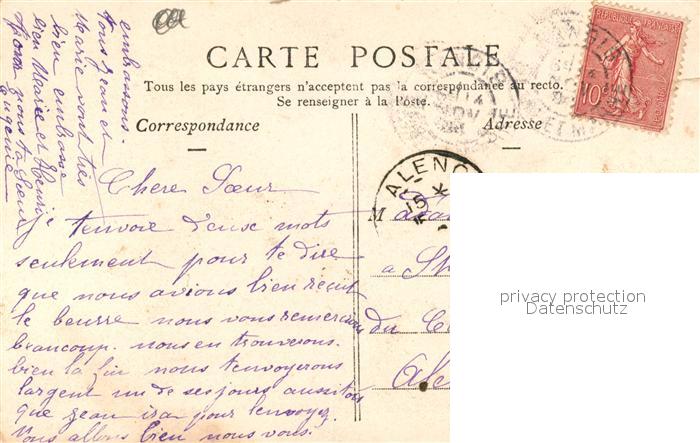 CARTE POSTALE
Tous les pays étrangers n'acceptent pas la correspondance au recto.
Se renseigner à la Poste.
Correspondance
Adresse
RÉPUBLIQUE FRANÇAISE
10
ALENÇ
Chere Sœur
t'envoie d'euse mots
seulement pour te dire
que nous avions bien reçut
le beurre nous vous remercions
beaucoup. nous en trouverons.
bien la fin nous t'envoyerons
largent un de ses jours aussitou
que jean ira pour lenvoyez.
Vous allons bien nous vous.
embrassons.
tous jean et
Marie vont très
bien embrasse
bien Marie et Henri
pour nous ta Sœur
Eugenie
M
a
du
Ale
privacy protection
Datenschutz